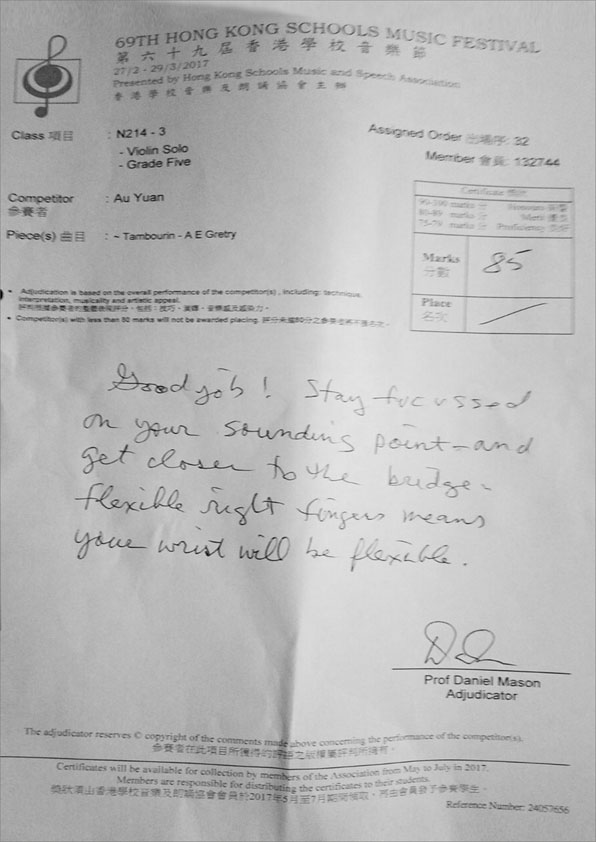 69TH HONG KONG SCHOOLS MUSIC FESTIVAL
第六十九屆香港學校音樂節
27/2 - 29/3/2017
Presented by Hong Kong Schools Music and Speech Association
香港學校音樂及朗誦協會主辦
Class 項目 : N214 - 3
- Violin Solo
- Grade Five
Assigned Order 出場序: 32
Member 會員: 132744
Competitor : Au Yuan
參賽者
Piece(s) 曲目 : ~ Tambourin - A E Gretry
Certificate
90-100 marks 分 Honours
80-89 marks 分 Merit
75-79 marks 分 Proficiency
Marks 85
分數
Place
名次
• Adjudication is based on the overall performance of the competitor(s), including: technique,
interpretation, musicality and artistic appeal.
• Competitor(s) with less than 80 marks will not be awarded placing.
Good job! Stay focussed
on your sounding point - and
get closer to the bridge -
flexible right fingers means
your wrist will be flexible.
Prof Daniel Mason
Adjudicator
The adjudicator reserves © copyright of the comments made above concerning the performance of the competitor(s).
參賽者在此項目所獲得的評語之版權屬評判所擁有。
Certificates will be available for collection by members of the Association from May to July in 2017.
Members are responsible for distributing the certificates to their students.
獎狀須由香港學校音樂及朗誦協會會員於2017年5月至7月期間領取，再由會員發予參賽學生。
Reference Number: 24057656